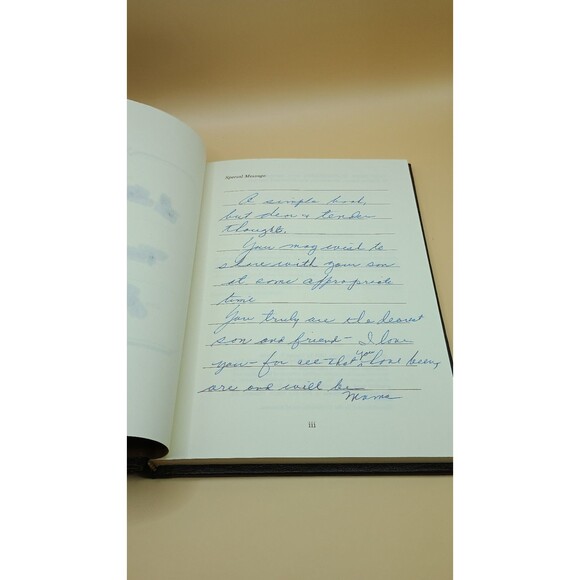 Special Message
A simple book,
but dear & tender
thoughts.
You may wish to
share with your son
at some appropriate
time
You truly are the dearest
son and friend - I love
you - for all that you have been,
are and will be
Mama
iii